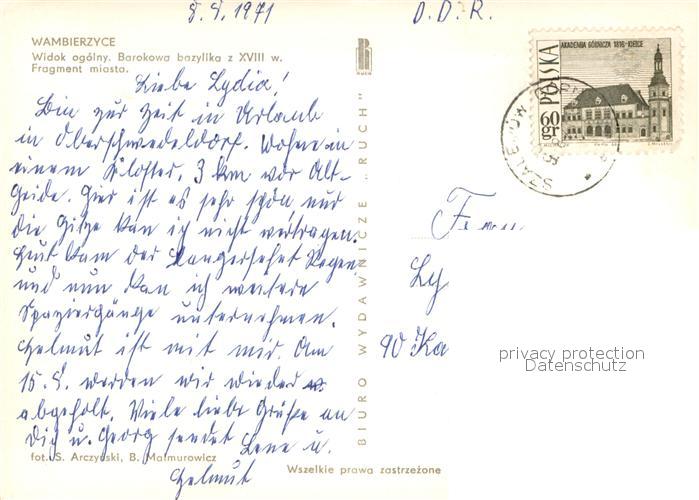 8.8.1971
D.D.R.
WAMBIERZYCE
Widok ogólny. Barokowa bazylika z XVIII w.
Fragment miasta.
RUCH
AKADEMIA GÓRNICZA 1816-KIELCE
POLSKA
60 gr
SZALEJÓW
Liebe Lydia!
Bin zur Zeit in Urlaub
in Oberschwedeldorf. Wohne in
einem Kloster, 3 km vor Alt-
Heide. Hier ist es sehr schön, nur
die Hitze kan ich nicht vertragen.
Heut kam der Langersehnt Regen
und nun kan ich weitere
Spaziergänge unternehmen.
Helmut ist mit mir. Am
15.8. werden wir wieder
abgeholt. Viele liebe Grüße an
Dich u. Georg sendet Lene u.
Helmut
BIURO WYDAWNICZE „RUCH"
Ly
90 Ka
privacy protection
Datenschutz
fot. S. Arczyński, B. Malmurowicz
Wszelkie prawa zastrzeżone